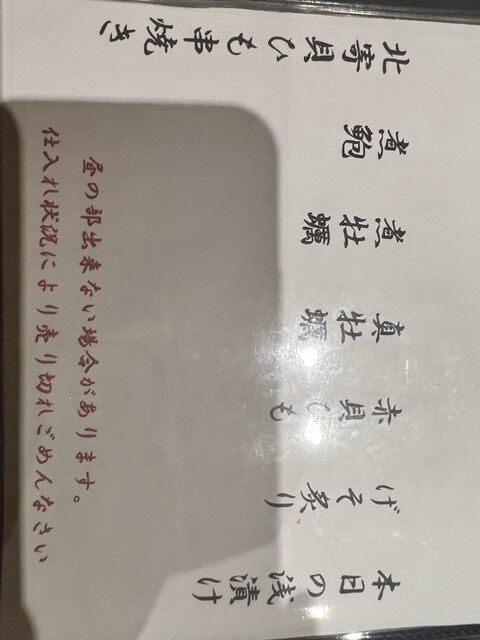 本日の浅漬け
げそ炙り
赤貝ひも
真牡蠣
煮牡蠣
煮鮑
北寄貝ひも串焼き
昼の部出来ない場合があります。
仕入れ状況により売り切れごめんなさい